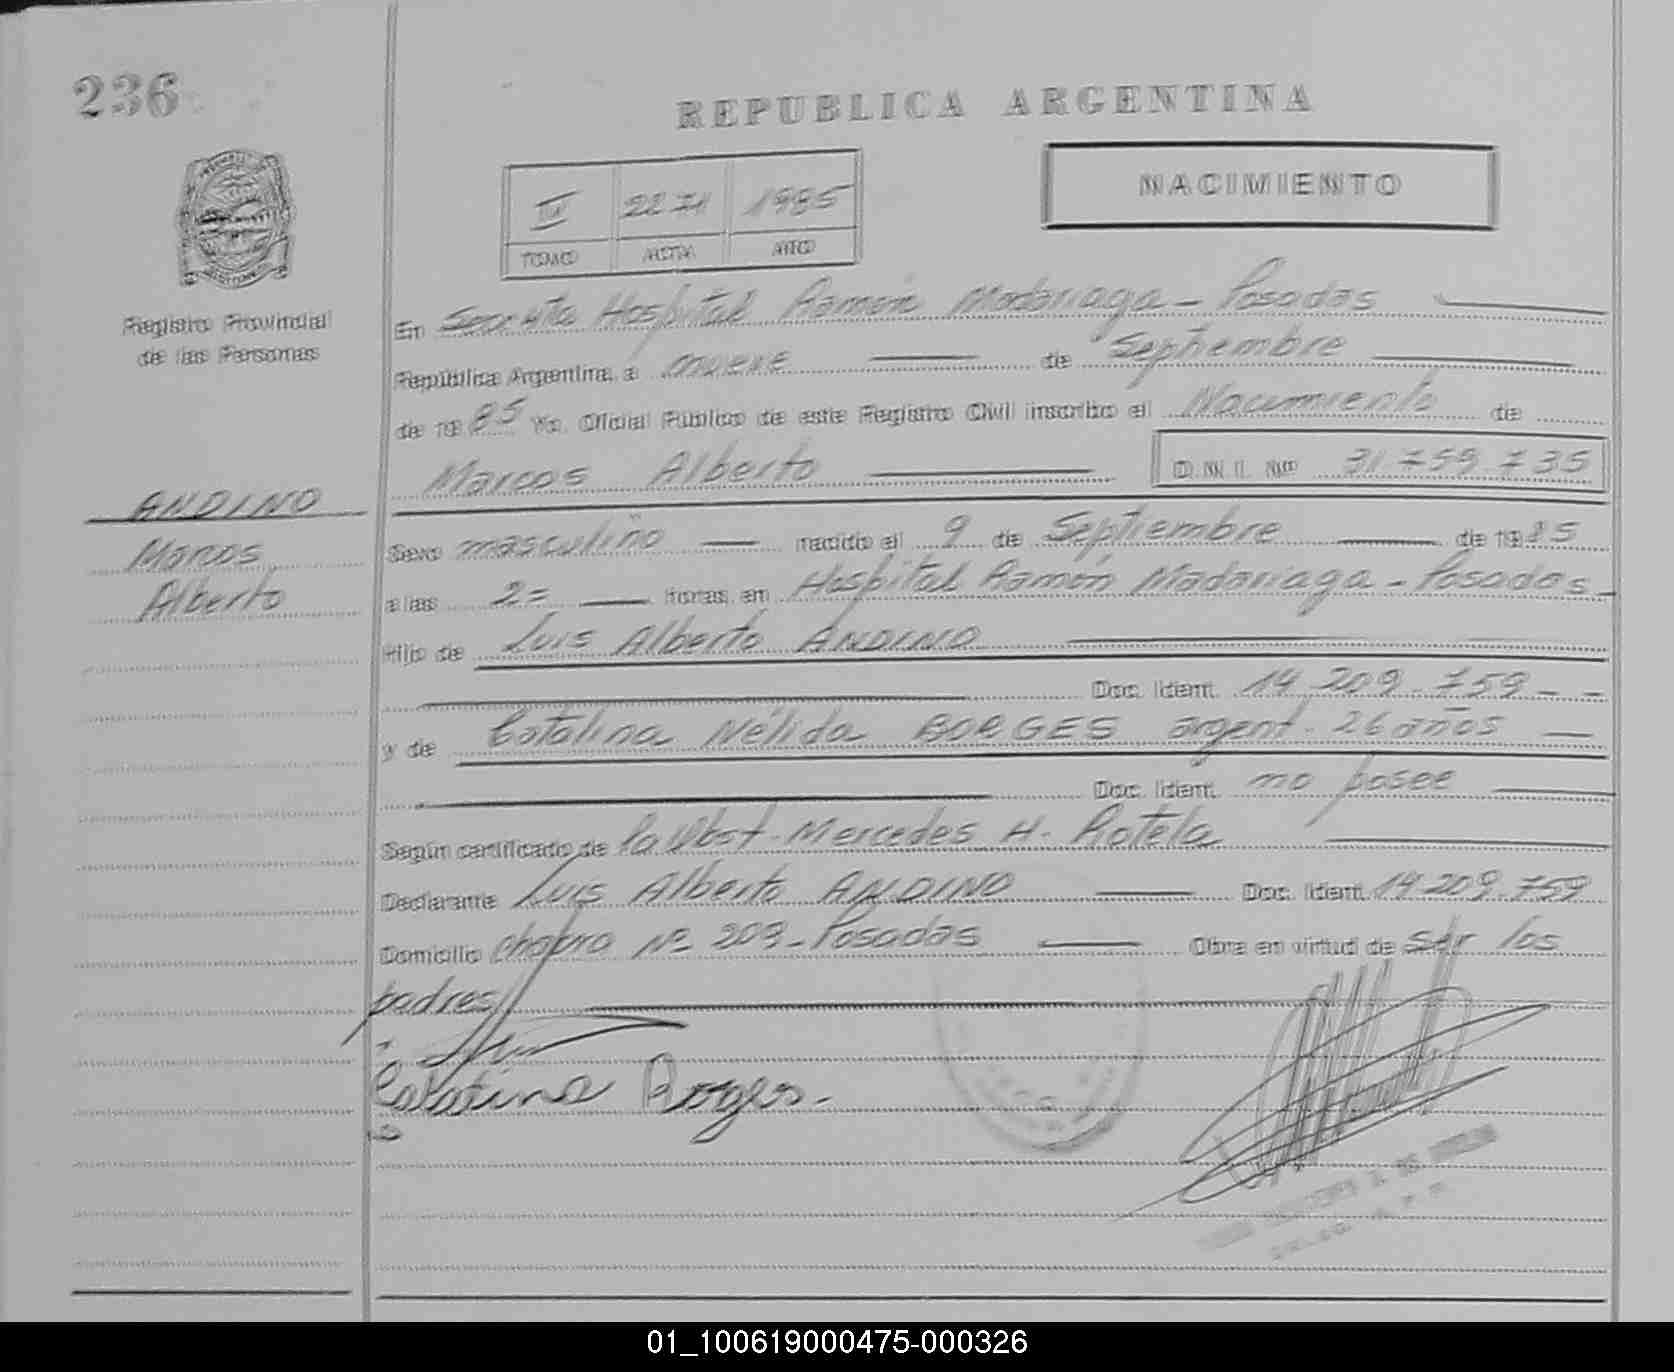 236
REPUBLICA ARGENTINA
NACIMIENTO
II 2271 1985
TOMO ACTA AÑO
Registro Provincial
de las Personas
En Hospital Ramón Madariaga - Posadas
República Argentina, a nueve de Septiembre
de 1985 Yo, Oficial Público de este Registro Civil inscribo el Nacimiento de
Marcos Alberto D.N.I. Nº 31 759 735
ANDINO
Marcos
Alberto
Sexo masculino nacido el 9 de Septiembre de 1985
a las 2= horas, en Hospital Ramón Madariaga - Posadas -
Hijo de Luis Alberto ANDINO
Doc. Ident. 14 209.759 - -
y de Catalina Nélida BORGES argent. 26 años
Doc. Ident. no posee
Según certificado de la Obst. Mercedes H. Rotela
Declarante Luis Alberto ANDINO Doc. Ident. 14.209.759
Domicilio Nº 209 - Posadas Obra en virtud de ser los
padres
Catalina Borges.
01_100619000475-000326